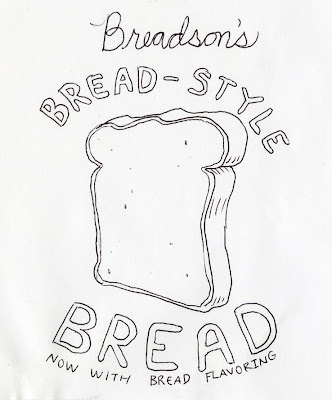 Breadson's
BREAD-STYLE
BREAD
NOW WITH BREAD FLAVORING